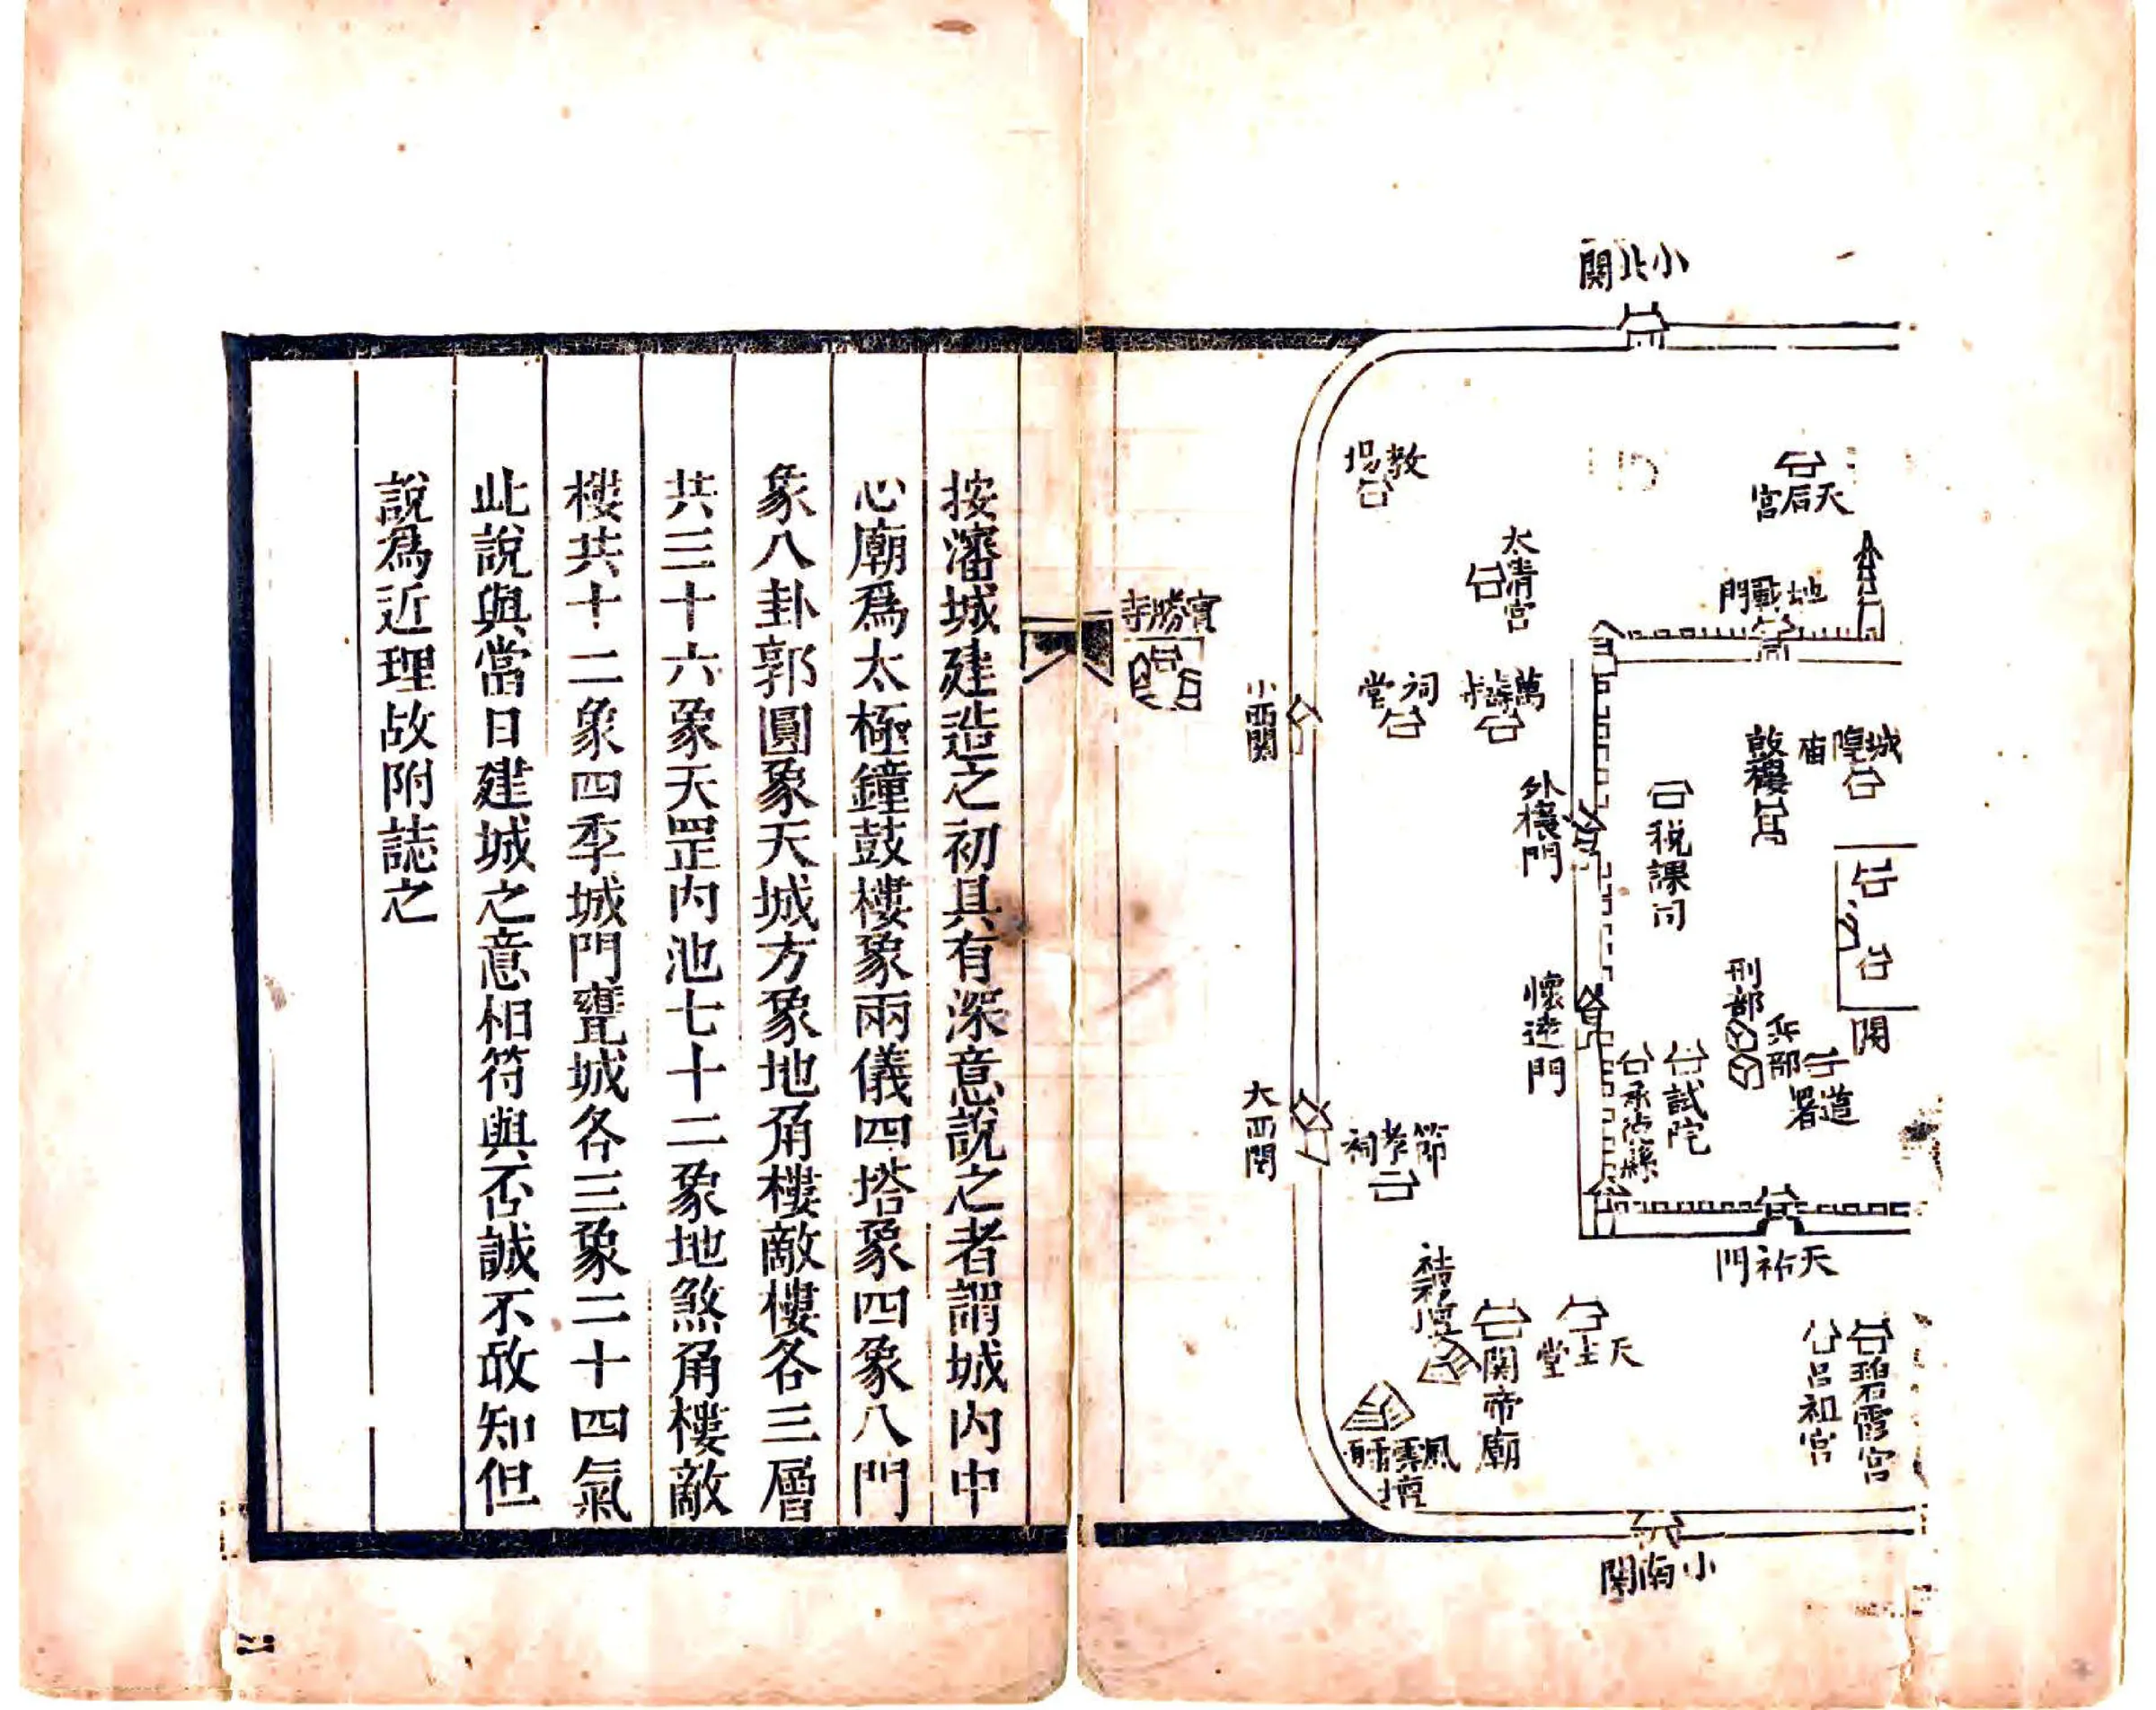 小北関
教場
天后宮
太清宮
地載門
寳勝寺
小西関
祠堂
萬壽寺
外攘門
稅課司
鼓樓
城隍庙
懷遠門
刑部
兵部
関
道署
試院
承德縣
大西関
節孝祠
天祐門
社稷壇
関帝廟
天主堂
呂祖宮
碧霞宮
風雲雷雨壇
小南関
按瀋城建造之初具有深意說之者謂城内中
心廟爲太極鐘鼓樓象兩儀四塔象四象八門
象八卦郭圓象天城方象地角樓敵樓各三層
共三十六象天罡内池七十二象地煞角樓敵
樓共十二象四季城門甕城各三象二十四氣
此說與當日建城之意相符與否誠不敢知但
說爲近理故附誌之